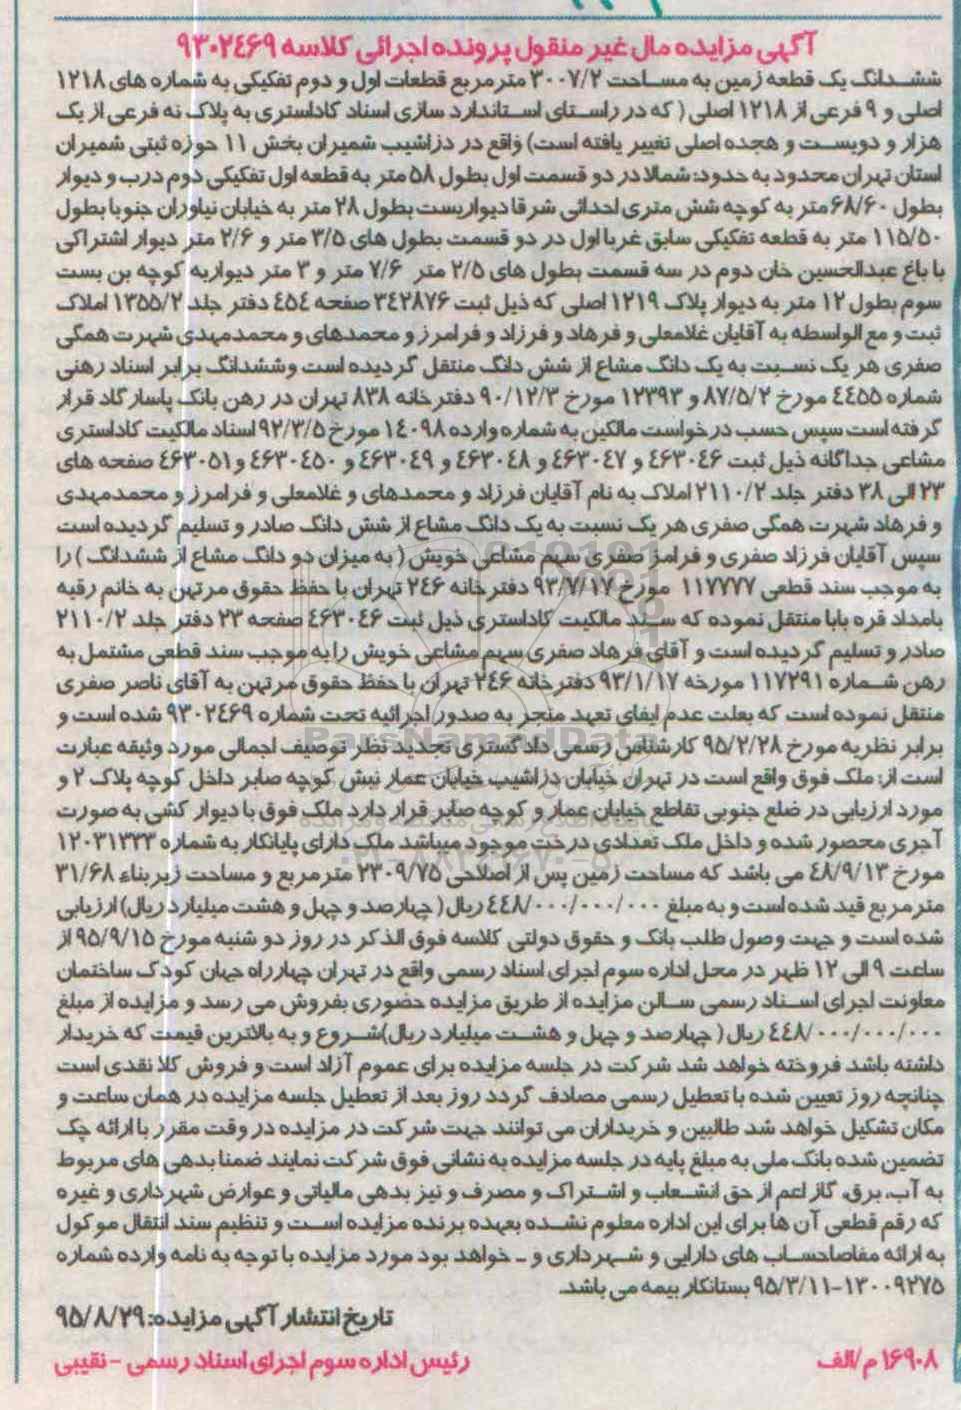 آگهی مزایده مال غیر منقول پرونده اجرائی کلاسه ۹۳۰۲٤۶۹
ششدانگ یک قطعه زمین به مساحت ۳۰۰۷/۲ مترمربع قطعات اول و دوم تفکیکی به شماره های ۱۲۱۸
اصلی و ۹ فرعی از ۱۲۱۸ اصلی ( که در راستای استاندارد سازی اسناد کاداستری به پلاک نه فرعی از یک
هزار و دویست و هجده اصلی تغییر یافته است) واقع در دزاشیب شمیران بخش ۱۱ حوزه ثبتی شمیران
استان تهران محدود به حدود: شمالا در دو قسمت اول بطول ۵۸ متر به قطعه اول تفکیکی دوم درب و دیوار
بطول ۶۸/۶۰ متر به کوچه شش متری احداثی شرقا دیواریست بطول ۲۸ متر به خیابان نیاوران جنوبا بطول
۱۱۵/۵۰ متر به قطعه تفکیکی سابق غربا اول در دو قسمت بطول های ۳/۵ متر و ۲/۶ متر دیوار اشتراکی
با باغ عبدالحسین خان دوم در سه قسمت بطول های ۲/۵ متر ۷/۶ متر و ۳ متر دیواربه کوچه بن بست
سوم بطول ۱۲ متر به دیوار پلاک ۱۲۱۹ اصلی که ذیل ثبت ۳٤۲۸۷۶ صفحه ٤۵٤ دفتر جلد ۱۳۵۵/۲ املاک
ثبت و مع الواسطه به آقایان غلامعلی و فرهاد و فرزاد و فرامرز و محمدهای و محمدمهدی شهرت همگی
صفری هر یک نسبت به یک دانگ مشاع از شش دانگ منتقل گردیده است وششدانگ برابر اسناد رهنی
شماره ٤٤۵۵ مورخ ۸۷/۵/۲ و ۱۲۳۹۳ مورخ ۹۰/۱۲/۳ دفترخانه ۸۳۸ تهران در رهن بانک پاسارگاد قرار
گرفته است سپس حسب درخواست مالکین به شماره وارده ۱٤۰۹۸ مورخ ۹۲/۳/۵ اسناد مالکیت کاداستری
مشاعی جداگانه ذیل ثبت ٤۶۳۰٤۶ و ٤۶۳۰٤۷ و ٤۶۳۰٤۸ و ٤۶۳۰٤۹ و ٤۶۳۰٤۵۰ و ٤۶۳۰۵۱ صفحه های
۲۳ الی ۳۸ دفتر جلد ۲۱۱۰/۲ املاک به نام آقایان فرزاد و محمدهای و غلامعلی و فرامرز و محمدمهدی
و فرهاد شهرت همگی صفری هر یک نسبت به یک دانگ مشاع از شش دانگ صادر و تسلیم گردیده است
سپس آقایان فرزاد صفری و فرامرز صفری سهم مشاعی خویش ( به میزان دو دانگ مشاع از ششدانگ ) را
به موجب سند قطعی ۱۱۷۷۷۷ مورخ ۹۳/۷/۱۷ دفترخانه ۲٤۶ تهران با حفظ حقوق مرتهن به خانم رقیه
بامداد قره بابا منتقل نموده که سند مالکیت کاداستری ذیل ثبت ٤۶۳۰٤۶ صفحه ۲۳ دفتر جلد ۲۱۱۰/۲
صادر و تسلیم گردیده است و آقای فرهاد صفری سهم مشاعی خویش را به موجب سند قطعی مشتمل به
رهن شماره ۱۱۷۲۹۱ مورخه ۹۳/۱/۱۷ دفترخانه ۲٤۶ تهران با حفظ حقوق مرتهن به آقای ناصر صفری
منتقل نموده است که بعلت عدم ایفای تعهد منجر به صدور اجرائیه تحت شماره ۹۳۰۲٤۶۹ شده است و
برابر نظریه مورخ ۹۵/۲/۲۸ کارشناس رسمی دادگستری تجدید نظر توصیف اجمالی مورد وثیقه عبارت
است از: ملک فوق واقع است در تهران خیابان دزاشیب خیابان عمار نبش کوچه صابر داخل کوچه پلاک ۲ و
مورد ارزیابی در ضلع جنوبی تقاطع خیابان عمار و کوچه صابر قرار دارد ملک فوق با دیوار کشی به صورت
آجری محصور شده و داخل ملک تعدادی درخت موجود میباشد ملک دارای پایانکار به شماره ۱۲۰۳۱۳۳۳
مورخ ٤۸/۹/۱۳ می باشد که مساحت زمین پس از اصلاحی ۲۳۰۹/۷۵ مترمربع و مساحت زیربناء ۳۱/۶۸
مترمربع قید شده است و به مبلغ ٤٤۸/۰۰۰/۰۰۰/۰۰۰ ریال ( چهارصد و چهل و هشت میلیارد ریال) ارزیابی
شده است و جهت وصول طلب بانک و حقوق دولتی کلاسه فوق الذکر در روز دو شنبه مورخ ۹۵/۹/۱۵ از
ساعت ۹ الی ۱۲ ظهر در محل اداره سوم اجرای اسناد رسمی واقع در تهران چهارراه جهان کودک ساختمان
معاونت اجرای اسناد رسمی سالن مزایده از طریق مزایده حضوری بفروش می رسد و مزایده از مبلغ
٤٤۸/۰۰۰/۰۰۰/۰۰۰ ریال ( چهارصد و چهل و هشت میلیارد ریال)شروع و به بالاترین قیمت که خریدار
داشته باشد فروخته خواهد شد شرکت در جلسه مزایده برای عموم آزاد است و فروش کلا نقدی است
چنانچه روز تعیین شده با تعطیل رسمی مصادف گردد روز بعد از تعطیل جلسه مزایده در همان ساعت و
مکان تشکیل خواهد شد طالبین و خریداران می توانند جهت شرکت در مزایده در وقت مقرر با ارائه چک
تضمین شده بانک ملی به مبلغ پایه در جلسه مزایده به نشانی فوق شرکت نمایند ضمنا بدهی های مربوط
به آب، برق، گاز اعم از حق انشعاب و اشتراک و مصرف و نیز بدهی مالیاتی و عوارض شهرداری و غیره
که رقم قطعی آن ها برای این اداره معلوم نشده بعهده برنده مزایده است و تنظیم سند انتقال موکول
به ارائه مفاصاحساب های دارایی و شهرداری و ـ خواهد بود مورد مزایده با توجه به نامه وارده شماره
۱۳۰۰۹۲۷۵-۹۵/۳/۱۱ بستانکار بیمه می باشد.
تاریخ انتشار آگهی مزایده: ۹۵/۸/۲۹
رئیس اداره سوم اجرای اسناد رسمی - نقیبی
۱۶۹۰۸ م/الف
ParsNamadData